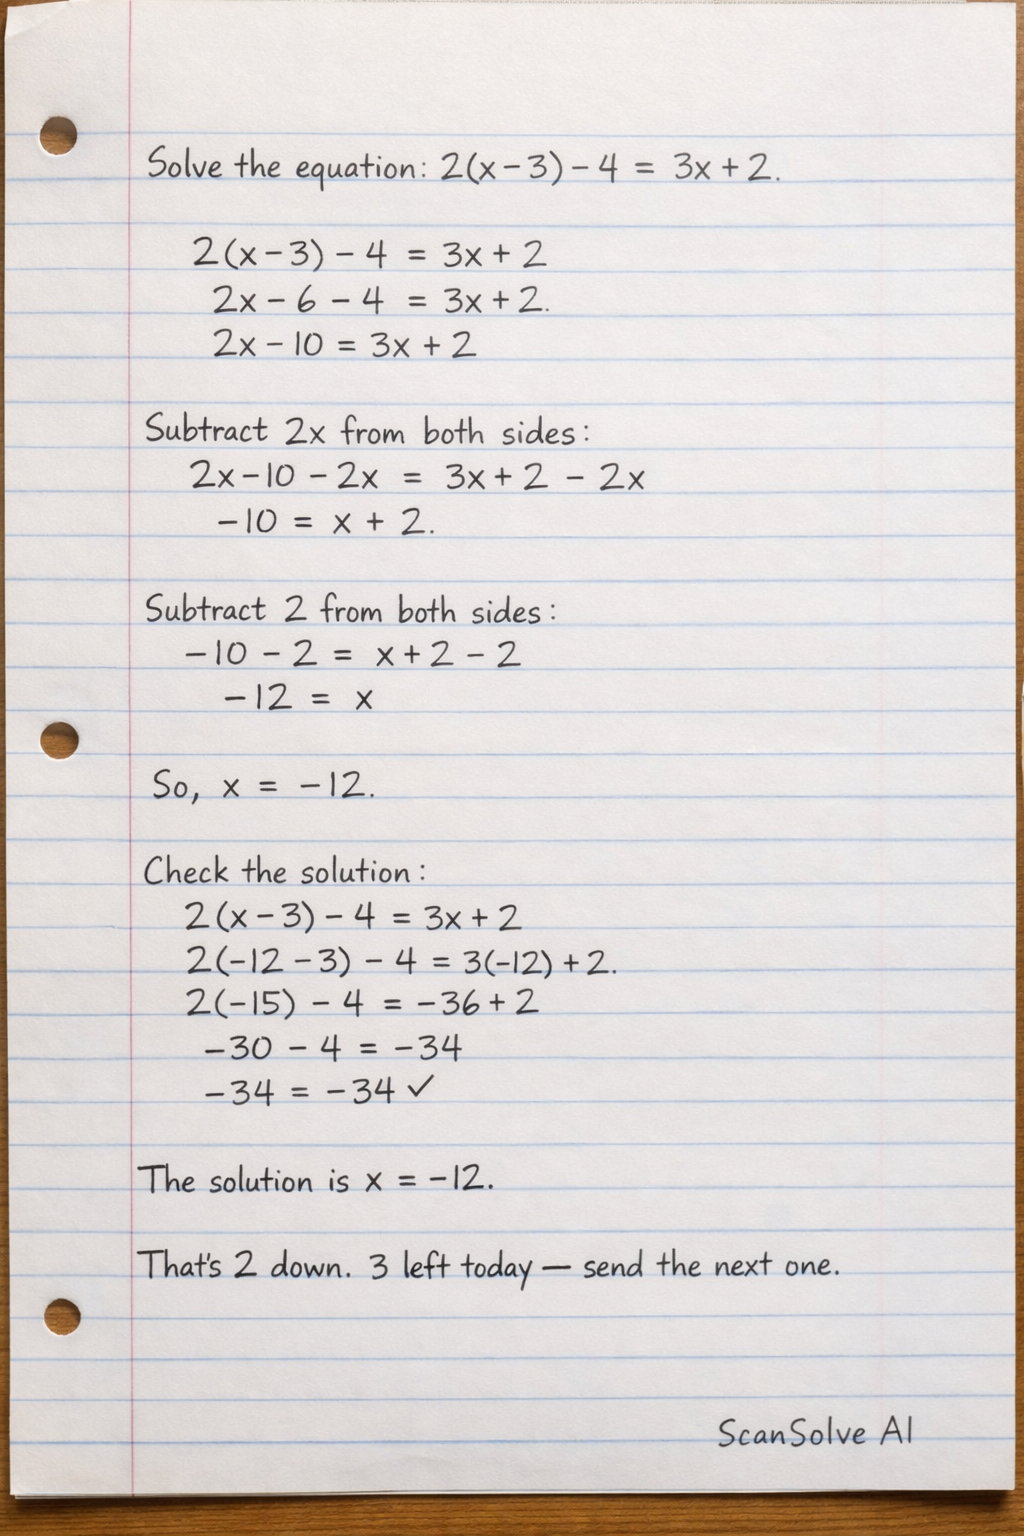 Solve the equation: 2(x-3)-4 = 3x+2.
2(x-3) - 4 = 3x + 2
2x - 6 - 4 = 3x + 2.
2x - 10 = 3x + 2
Subtract 2x from both sides:
2x-10 - 2x = 3x + 2 - 2x
-10 = x + 2.
Subtract 2 from both sides:
-10 - 2 = x + 2 - 2
-12 = x
So, x = -12.
Check the solution:
2(x-3) - 4 = 3x + 2
2(-12 - 3) - 4 = 3(-12) + 2.
2(-15) - 4 = -36 + 2
-30 - 4 = -34
-34 = -34 ✓
The solution is x = -12.
That's 2 down. 3 left today — send the next one.
ScanSolve AI